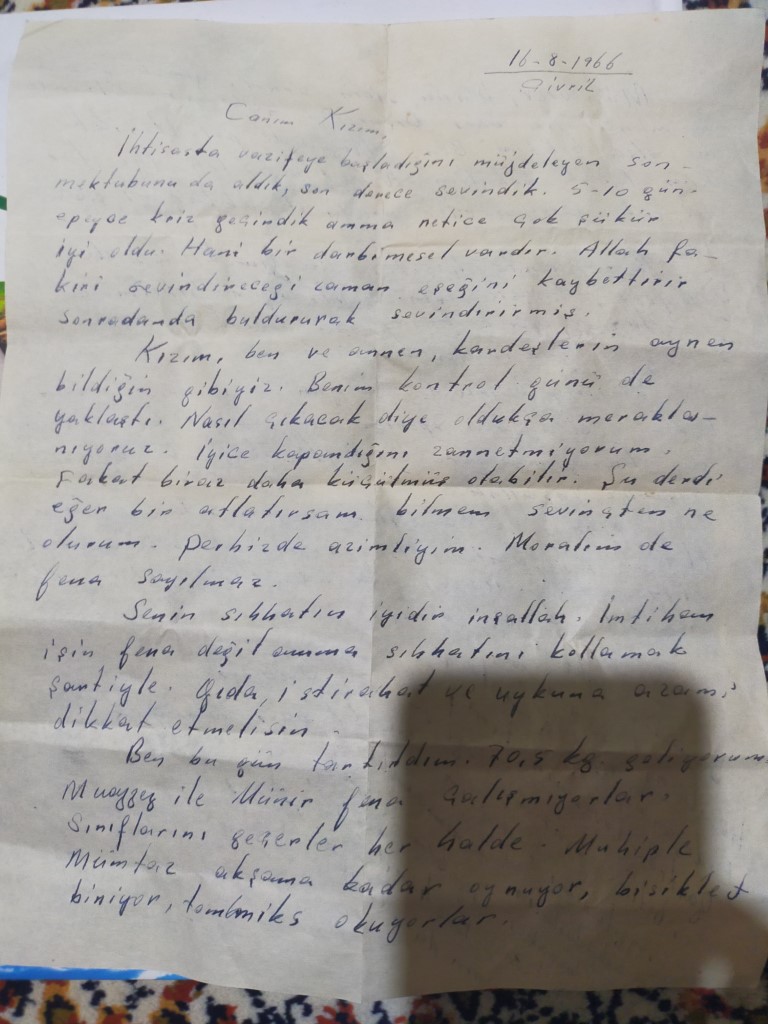 16-8-1966
Çivril
Canım Kızım,
İhtisasta vazifeye başladığını müjdeleyen son
mektubunu da aldık, son derece sevindik. 5-10 gün
epeyce kriz geçindik amma netice çok şükür
iyi oldu. Hani bir darbimesel vardır. Allah fa-
kiri sevindireceği zaman eşeğini kaybettirir
sonradanda buldururak sevindirirmiş.
Kızım, ben ve annen, kardeşlerin aynen
bildiğin gibiyiz. Benim kontrol günü de
yaklaştı. Nasıl çıkacak diye oldukça merakla-
nıyoruz. İyice kapandığını zannetmiyorum.
Fakat biraz daha küçülmüş olabilir. Şu derdi
eğer bir atlatırsam bilmem sevinçten ne
olurum. Perhizde azimliyim. Moralim de
fena sayılmaz.
Senin sıhhatın iyidir inşallah. İmtihan
için fena değil amma sıhhatını kollamak
şartiyle. Gıda, istirahat ve uykuna azami
dikkat etmelisin.
Ben bu gün tartıldım. 70,5 kg. geliyorum
Muazzez ile Münir fena çalışmıyorlar.
Sınıflarını geçerler her halde. Muhiple
Mümtaz akşama kadar oynuyor, bisiklet
biniyor, tommiks okuyorlar.